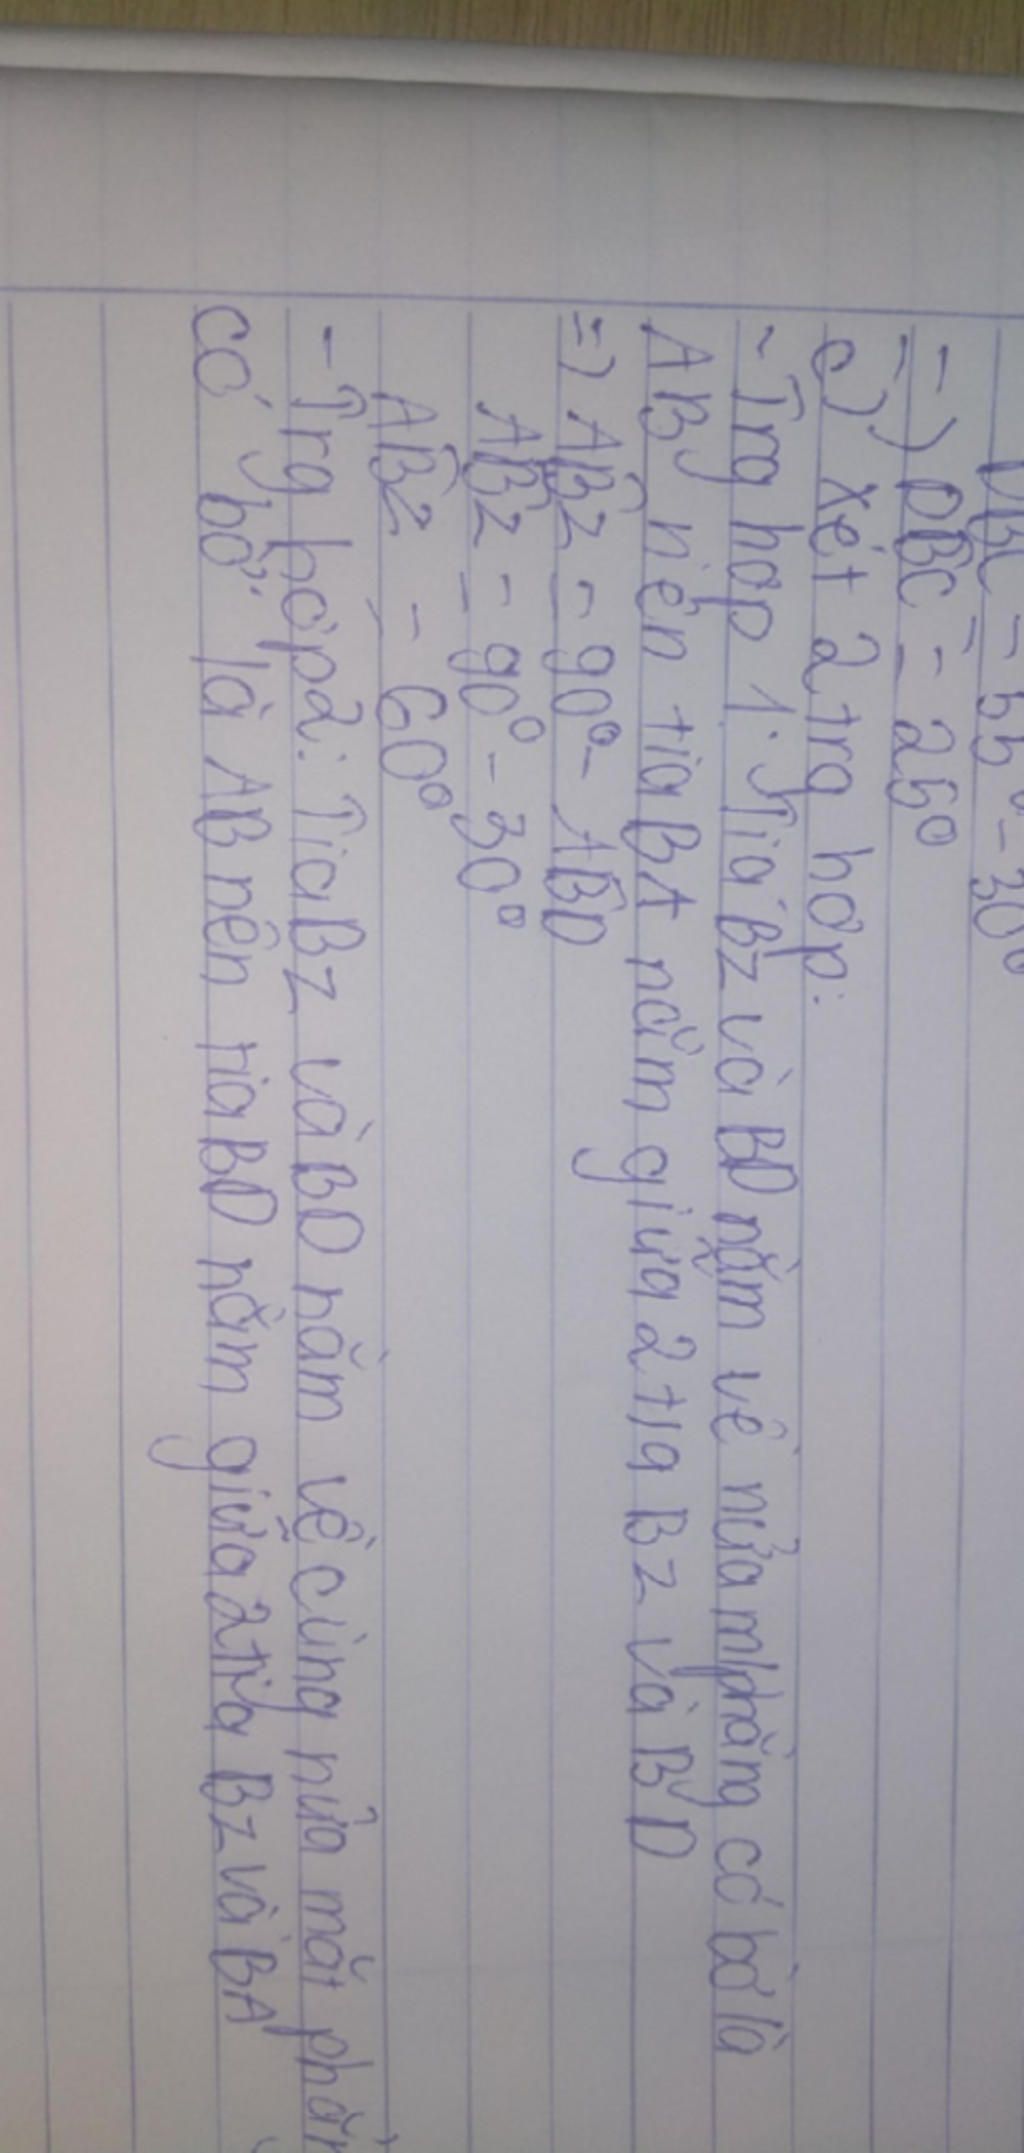 DBC = 55° - 30°
=) DBC = 25°
c) Xét 2 trg hợp:
- Trg hợp 1: Tia Bz và BD nằm về nửa m/phẳng có bờ là
AB, nên tia BA nằm giữa 2 tia Bz và BD
=) ABz = 90° - ABD
ABz = 90° - 30°
ABz = 60°
- Trg hợp 2: Tia Bz và BD nằm về cùng nửa mặt phẳn
có bờ là AB nên tia BD nằm giữa 2 tia Bz và BA